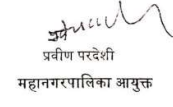 प्रवीण परदेशी
महानगरपालिका आयुक्त